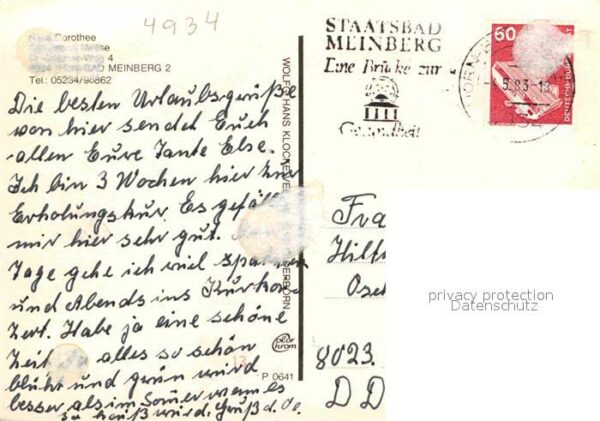 4934
Haus Dorothee
4
BAD MEINBERG 2
Tel.: 05234/98862
Die besten Urlaubsgrüße
von hier sendet Euch
allen Eure Tante Else.
Ich bin 3 Wochen hier zur
Erholungskur. Es gefällt
mir hier sehr gut.
Tage gehe ich viel spazieren
und Abends ins Kurkon
zert. Habe ja eine schöne
Zeit alles so schön
blüht und grün wird
besser als im Somer wenn es
so heiß wird. Gruß d. O.
WOLFGHANS KLOCKE VERLAG PADERBORN
color chrom
P 0641
13
STAATSBAD
MEINBERG
Eine Brücke zur
Gesundheit
HORN
5.83-1
60
DEUTSCHE BUNDESPOST
Fra
Hilf
Osc
8023
DD
privacy protection
Datenschutz